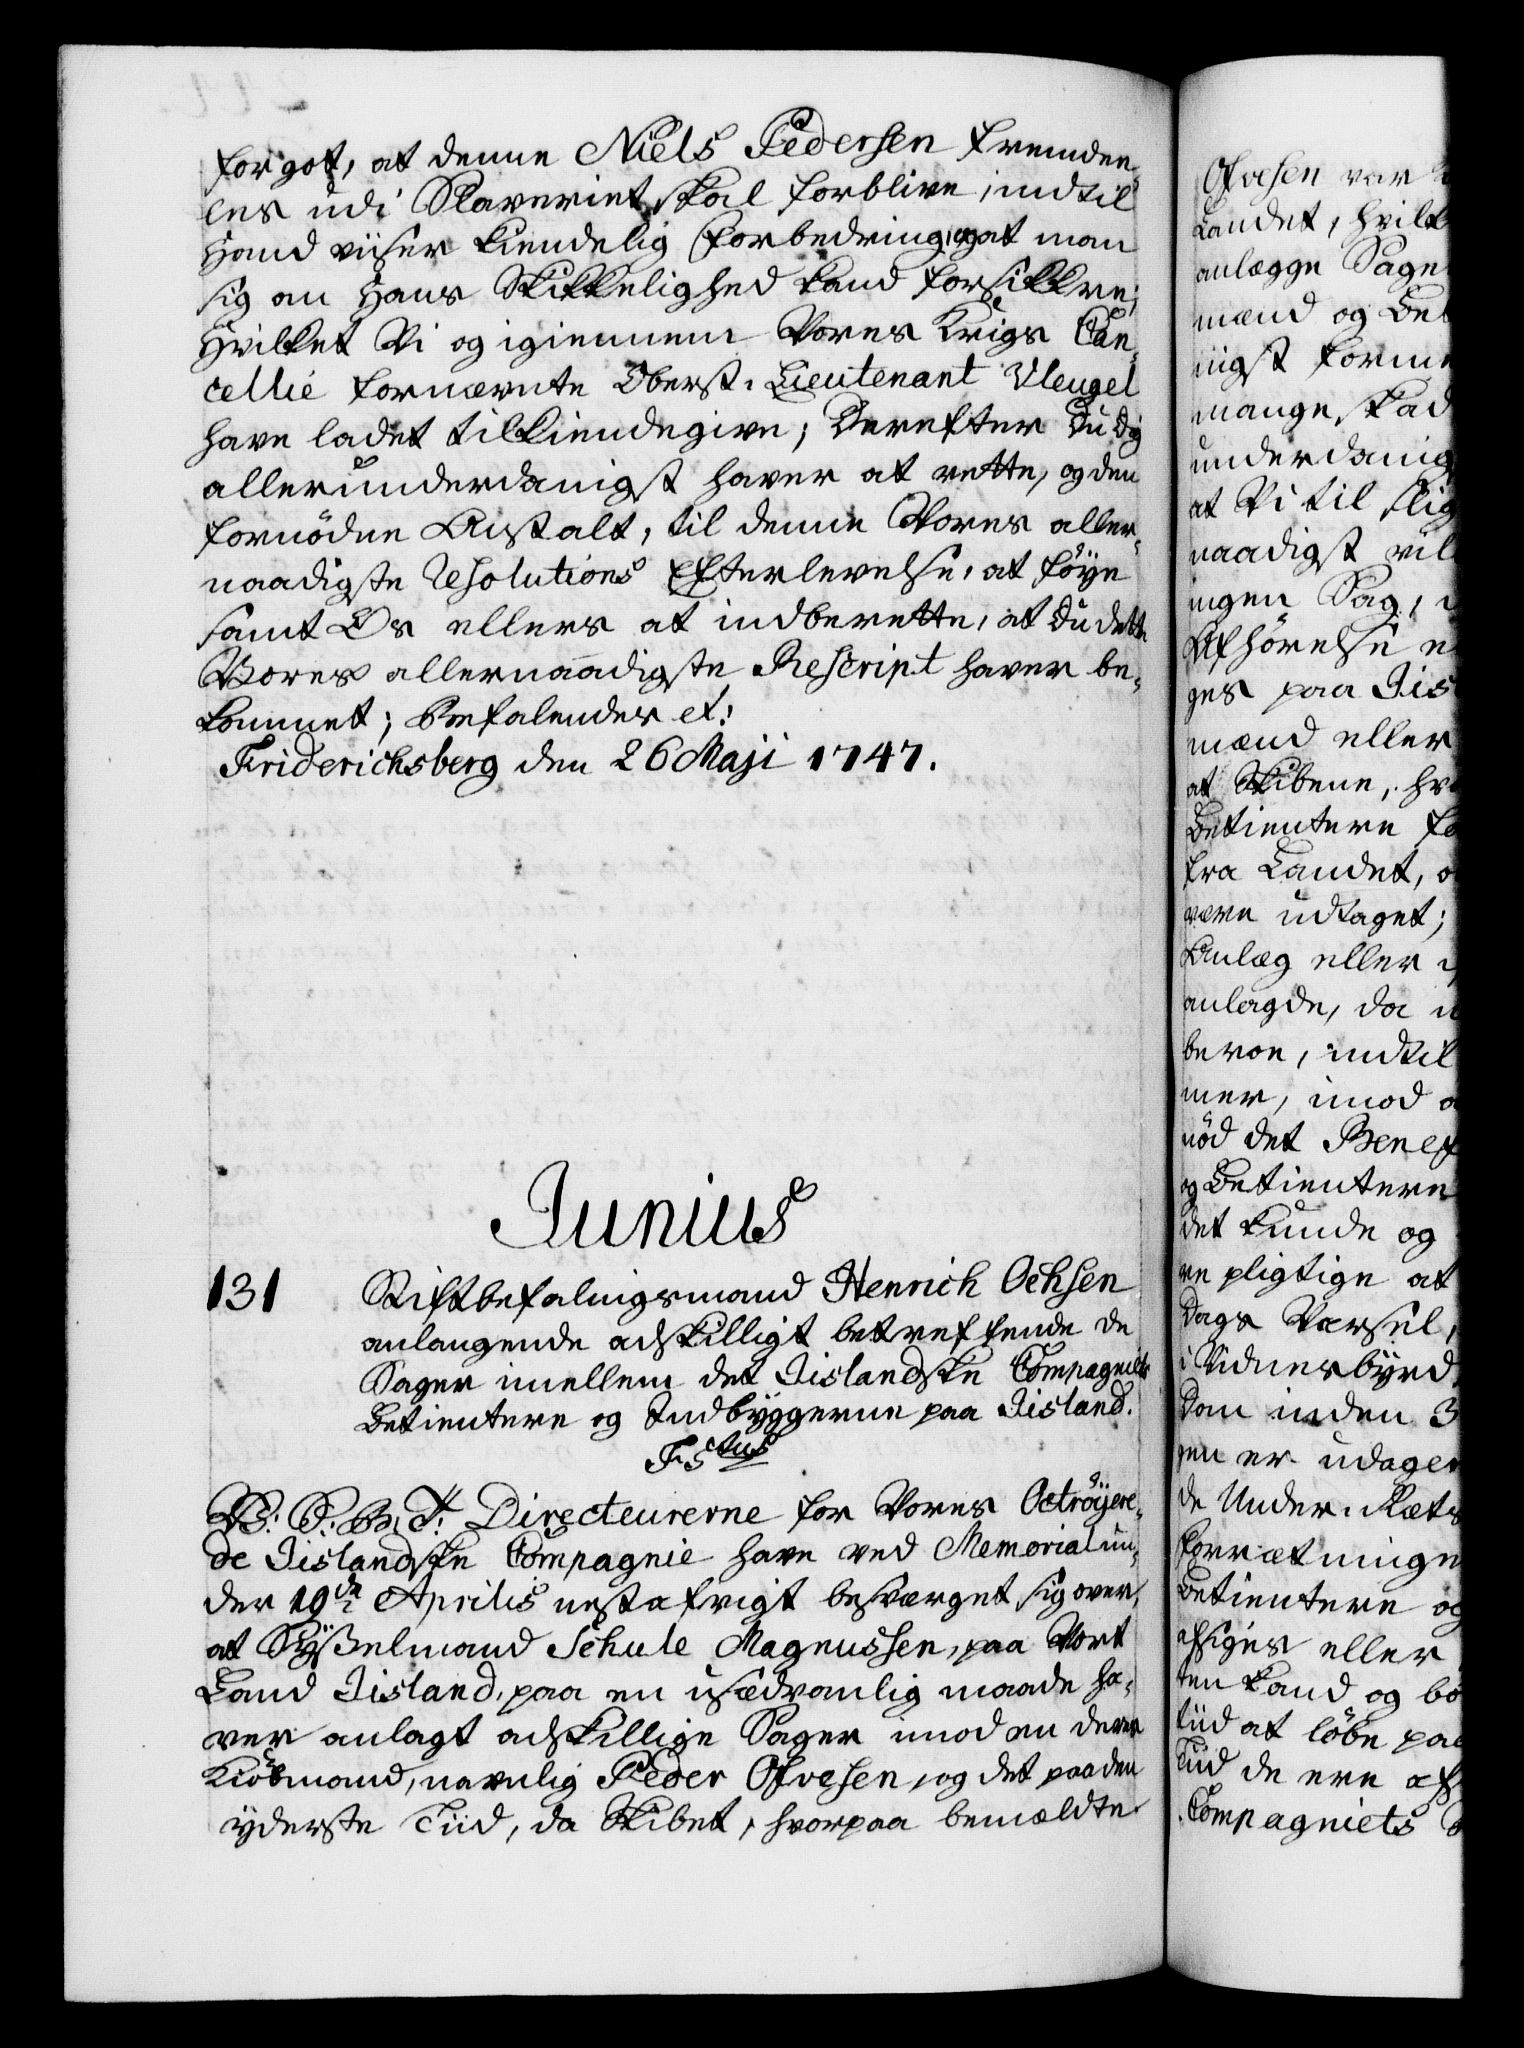 for got, at denne Niels Pedersen fremdee¬
les udi Slaveriet skal forblive, indtil
Hand viiser kiendelig Forbedring, og at man
sig om Hans Skikkelighed kand forsikkre;
Hvilket Vi og igiennem Vores Krigs Can¬
cellie fornævnte Oberst-Lieutenant Vleugel
have ladet tilkiendegive; Derefter Du Dig
allerunderdanigst haver at rette, og den
fornödne Anstalt, til denne Vores aller¬
naadigste Resolutions Efterlevelse, at föye
samt Os ellers at indberette, at Du dette
Vores allernaadigste Rescript haver be¬
kommet; Befalendes et:
Friderichsberg den 26 Maji 1747.
Junius
131
Stiftbefalingsmand Henrich Ochsen
anlangende adskilligt betreffende de
Sager imellem det Iislandske Compagnies
Betientere og Indbyggerne paa Iisland.
F5tus
V: S: G: T: Directeurerne for Vores Octröyere¬
de Iislandske Compagnie have ved Memorial un¬
der 19de Aprilis nestafvigt besværget sig over,
at Sysselmand Schule Magnussen, paa Vort
Land Iisland, paa en usædvanlig maade ha¬
ver anlagt adskillige Sager imod en deres
Kiöbmand, navnlig Peder Ofvesen, og det paa den
yderste Tiid, da Skibet, hvorpaa bemældte
Ofvesen var
Landet, hvilk
anlægge Sage
mænd og Bet
nigst forme
mange, skad
underdanig
at Vi til slig
naadigst vil
ingen Sag,
Afhörelse
ges paa Iis
mænd eller
at Skibene,
Betientere fo
fra Landet,
være udtaget;
Anlæg eller
anlagde, da
beroe, indtil
mer, imod
nöd det Benef
og Betientere
det kunde og
re pligtige at
Dags Varsel,
i Vidnesbyrd
dom inden 3
gen er udager
de Under-Rets
forretninge
Betientere og
afsiges eller
ten kand og bö
tiid at löbe paa
Tiid de ere af
Compagniets